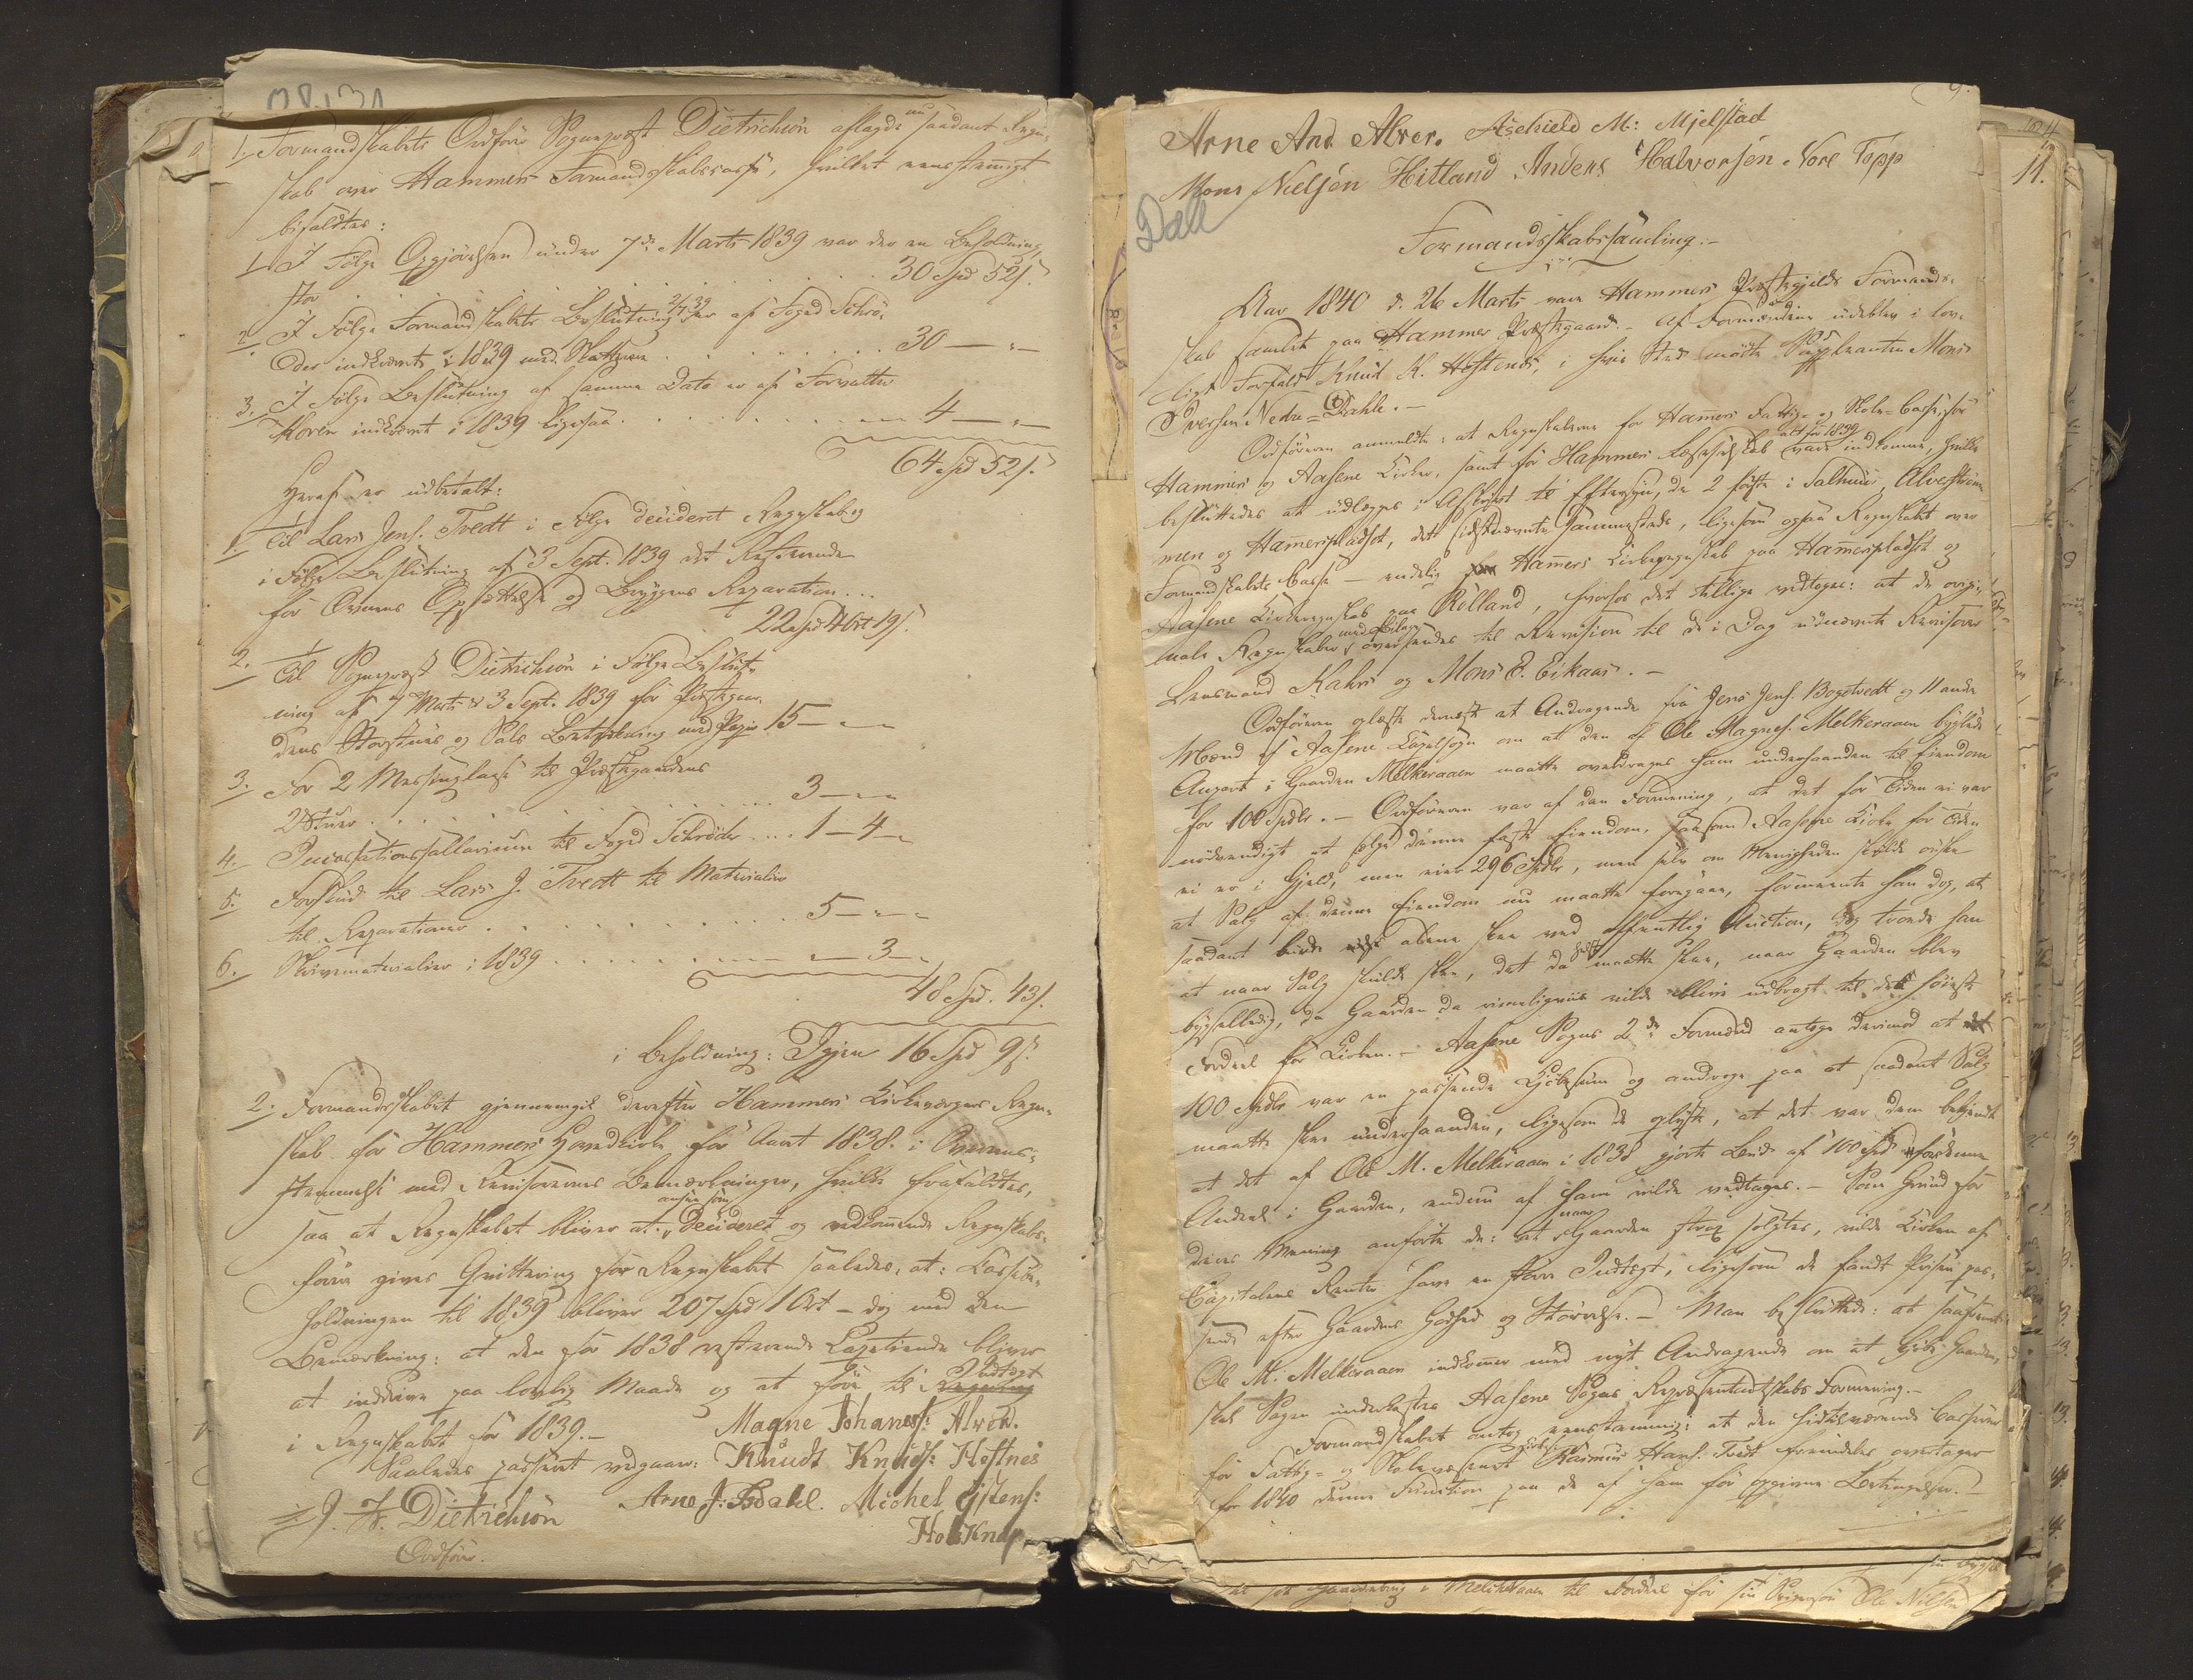 1. Formandskabets Ordfører Sognepræst Dietrichson aflagde nu saadant Regn-
skab over Hammers Formandsskabscasse, hvilket eenstemmigt
bifaldtes:
1. I Følge Opgjørelsen under 7de Marts 1839 var der en Beholdning
stor . . . . . . 30 Spd 52 s.
2. I Følge Formandskabets Beslutning 2/4 39 er af Foged Schrø-
der indkrævet i 1839 med Skatterne . . . . 30 — " —
3. I Følge Beslutning af samme Dato er af Forvalter
Koren indkrævet i 1839 ligesaa . . . . 4 — " —
64 Spd 52 s.
Heraf er udbetalt:
1. Til Lars Jens. Tvedt i Følge decideret Regnskab og
i Følge Beslutning af 3 Sept. 1839 det Resterende
for Ovnens Opsættelse og Bryggens Reparation . . .
22 Spd 4 Ort 19 s.
2. Til Sognepræst Dietrichson i Følge Beslut-
ning af 7 Marts & 3 Sept. 1839 for Præstegaar-
dens Storstues og Sals Betrækning med Papir 15 — " —
3. For 2 Messinglaase til Præstegaardens
2 Stuer . . . . . 3 — " —
4. Incassationssallarium til Foged Schrøder . . . . 1 — 4 — "
5. Forskud til Lars J. Tvedt til Materialier
til Reparationer . . . . . 5 — " — "
6. Skrivematerialier i 1839 . . . . . — 3 — "
48 Spd. 43 s.
i Beholdning: Igjen 16 Spd 9 s.
2. Formandsskabet gjennemgik derefter Hammers Kirkeværgers Regn-
skab for Hammers Hovedkirke for Aaret 1838 i Overens-
stemmelse med Revisorernes Bemærkninger, hvilke frafaldtes,
saa at Regnskabet bliver at ansee som decideret og vedkommende Regnskabs-
fører gives Qvittering for Regnskabet saaledes, at: Cassebe-
holdningen til 1839 bliver 207 Spd 1 Ort – dog med den
Bemærkning: at den for 1838 resterende Tiende bliver
at inddrive paa lovlig Maade og at føre til Indtægt
i Regnskabet for 1839.–
Magne Johaness: Alvøe.
Saaledes passeret vedgaaer: Knudt Knuds: Hostnes
J. F. Dietrichson Arne J: Isdahl. Michel Eistens:
Ordfører. Holi Knap
9.
Arne And. Alver. Asehield M: Mjelstad
Mons Nielsen Hitland Anders Halvorsen Nore Topp
Dale
Formandsskabssamling.–
Aar 1840 d. 26 Marts var Hammers Præstegjelds Formand-
skab samlet paa Hammer Præstegaard.– Af Formændene udeblev i lov-
ligt Forfald Knud K. Hostenes, i hvis Sted mødte Suppleanten Mons
Iversen Nedre-Dahle.–
Ordføreren anmeldte: at Regnskaberne for Hamers Fattig- og Skole-Casse, for
Hammers og Aasene Kirker, samt for Hammers Læseselskab alt for 1839 vare indkomne, hvilke
besluttedes at udlægges i Afskrivt til Eftersyn, de 2 første i Salhuus, Alverstrøm-
men og Hamerspladset, det sidstnævnte sammesteds, ligesom ogsaa Regnskabet over
Formandskabets Casse – endelig Hamers Kirkeregnskab paa Hamerspladset og
Aasene Kirkeregnskab paa Rølland, hvorhos det tillige vedtoges: at de origi-
nale Regnskaber med Bilage oversendes til Revision til de i Dag udnævnte Revisorer
Lensmand Kahrs og Mons E. Eikaas.–
Ordføreren oplæste dernæst et Andragende fra Jens Jens. Bogetvedt og 11 andre
Mænd af Aasene Capelsogn om at den af Ole Magnes. Melkeraaen bygslede
Anpart i Gaarden Melkeraaen maatte overdrages ham underhaanden til Eiendom
for 100 Spdlr.– Ordføreren var af den Formening, at det for Tiden ei var
nødvendigt at sælge denne faste Eiendom, saasom Aasene Kirke for Tiden
ei er i Gjeld, men eier 296 Spdlr, men selv om Menigheden skulde ønske
at Salg af denne Eiendom nu maatte foregaae, formeente han dog, at
saadant burde alene skee ved offentlig Auction, dog troede han
at naar Salg skulde skee, det da helst maatte skee, naar Gaarden blev
bygselledig, da Gaarden da rimeligviis vilde blive udbragt til det høieste
Fordeel for Kirken.– Aasene Sogns 2de Formænd antoge derimod at
100 Spdlr var en passende Kjøbesum og androge paa at saadant Salg
maatte skee underhaanden, ligesom de oplyste, at det var dem bekjendt
at det af Ole M. Melkeraaen i 1838 gjorte Bud af 100 Spd for denne
Andeel i Gaarden, endnu af ham vilde vedtages.– Som Grund for
deres Mening anførte de: at naar Gaarden strax solgtes, vilde Kirken af
Capitalens Renter have en større Indtægt, ligesom de fandt Prisen pas-
sende efter Gaardens Godhed og Størrelse.– Man besluttede: at saafremt
Ole M. Melkeraaen indkommer med nyt Andragende om at kjøbe Gaarden,
skal Sagen underkastes Aasene Sogns Repræsentantskabs Formening.–
Formandskabet antog eenstemmigt at den hidtilværende Casserer
for Fattig- og Skolevæsenet Rasmus Hans. Tvedt fremdeles overtager
for 1840 denne Function paa de af ham før opgivne Betingelser.–
11.
Melkeraaen til Fordeel for sin Ole Nilsen